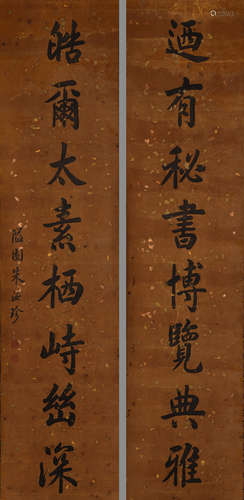 迺有秘書博覽典雅
皓爾太素栖峙嵤深
隘園朱汝珍